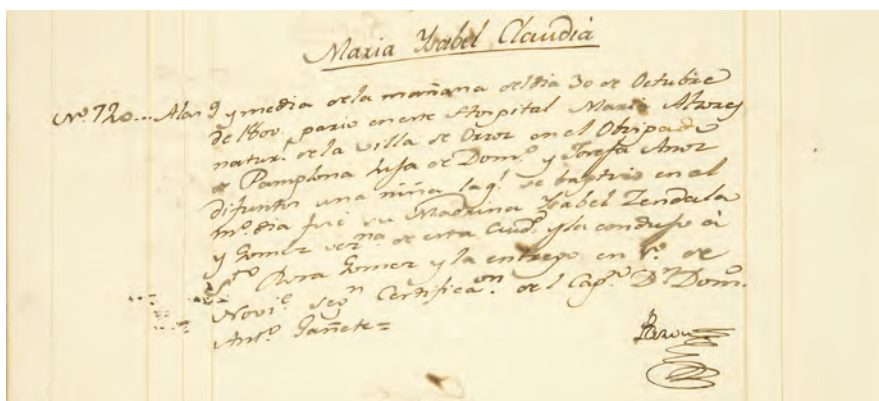 Maria Ysabel Claudia
Nº 720... A las 9 y media de la mañana del dia 30 de Octubre
de 1800. pario en este Hospital Maria Alvarez
natur.l de la villa de en el Obispado
de Pamplona hija de Dom.º y Josefa
difuntos una niña la q.l se baptizo en el
m.º dia fué su Madrina Ysabel Zendala
y Gomez vez.na de esta Ciud.d y la condujo á
Rosa Gomez y la entrego en 1.º de
Novi.e seg.n Certifica.on del Cap.n D.n Dom.º
Ant.º Gañete=